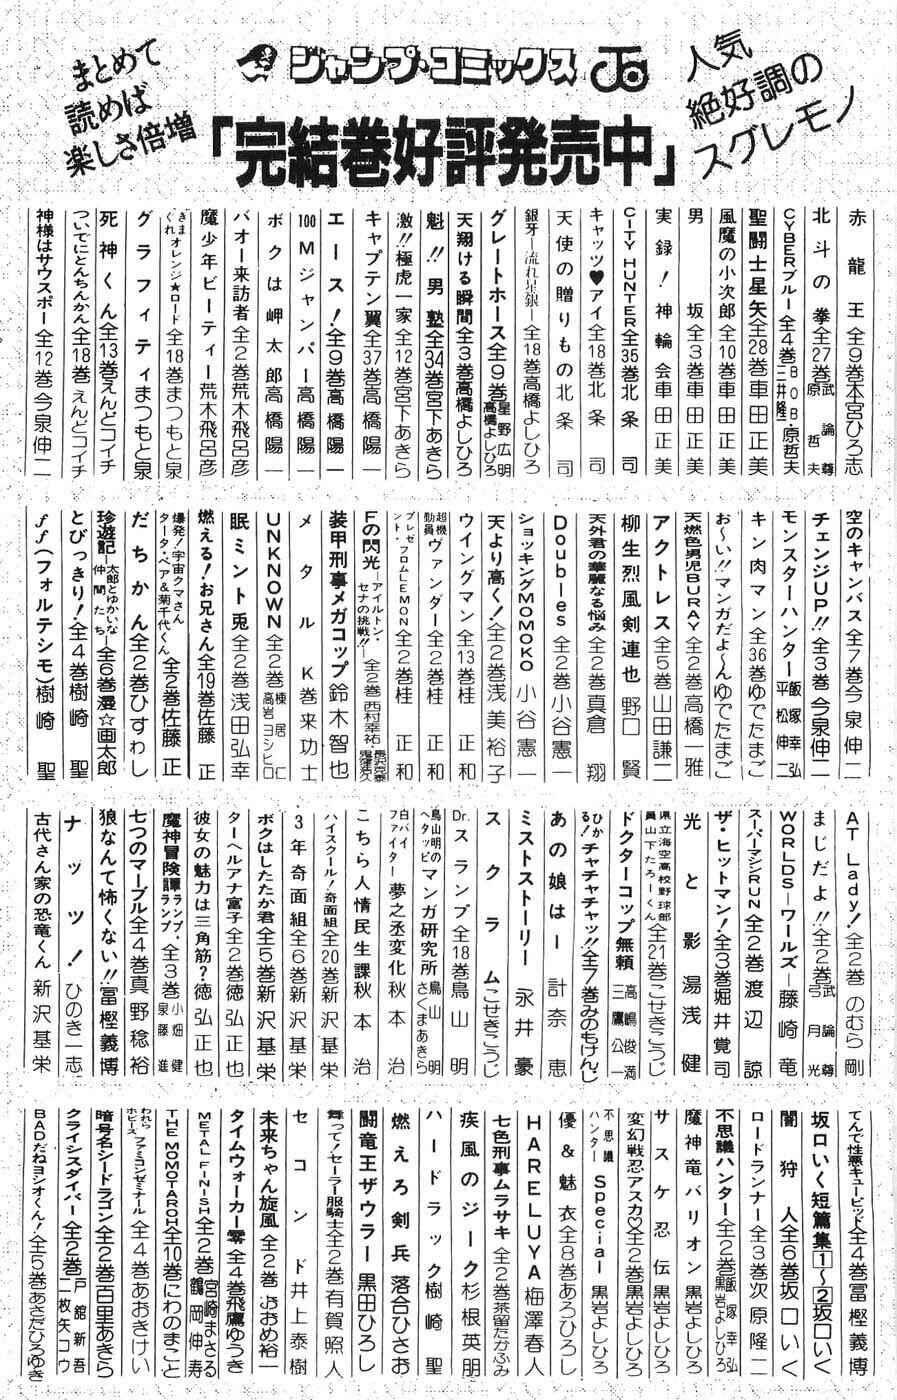 まとめて
読めば
楽しさ倍増
ジャンプ・コミックス
「完結巻好評発売中」
人気
絶好調の
スグレモノ
赤龍王全9巻本宮ひろ志
北斗の拳全27巻武論尊 原哲夫
CYBERブルー全4巻BOB・原哲夫 三井隆一
聖闘士星矢全28巻車田正美
風魔の小次郎全10巻車田正美
男坂全3巻車田正美
実録!神輪会車田正美
CITY HUNTER全35巻北条司
キャッツ♥アイ全18巻北条司
天使の贈りもの北条司
銀牙―流れ星銀―全18巻高橋よしひろ
グレートホース全9巻星野広明 高橋よしひろ
天翔ける瞬間全3巻高橋よしひろ
魁!!男塾全34巻宮下あきら
激!!極虎一家全12巻宮下あきら
キャプテン翼全37巻高橋陽一
エース!全9巻高橋陽一
100Mジャンパー高橋陽一
ボクは岬太郎高橋陽一
バオー来訪者全2巻荒木飛呂彦
魔少年ビーティー荒木飛呂彦
きまぐれオレンジ★ロード全18巻まつもと泉
グラフィティまつもと泉
死神くん全13巻えんどコイチ
ついでにとんちんかん全18巻えんどコイチ
神様はサウスポー全12巻今泉伸二
空のキャンバス全7巻今泉伸二
チェンジUP!!全3巻今泉伸二
モンスターハンター飯塚幸弘 平松伸二
キン肉マン全36巻ゆでたまご
お〜い!!マンガだよ〜んゆでたまご
天燃色男児BURAY全2巻高橋一雅
アクトレス全5巻山田謙二
柳生烈風剣連也野口賢
天外君の華麗なる悩み全2巻真倉翔
Doubles全2巻小谷憲一
ショッキングMOMOKO小谷憲一
天より高く!全2巻浅美裕子
ウイングマン全13巻桂正和
超機動員ヴァンダー全2巻桂正和
プレゼント・フロムLEMON全2巻桂正和
Fの閃光 アイルトン・セナの挑戦!!全2巻西村幸祐
装甲刑事メガコップ鈴木智也
メタルK巻来功士
UNKNOWN全2巻棟居仁 高岩ヨシヒロ
眠ミント兎全2巻浅田弘幸
燃える!お兄さん全19巻佐藤正
爆発!宇宙クマさんタータ・ベア&菊千代くん全2巻佐藤正
だちかん全2巻ひすわし
珍遊記―太郎とゆかいな仲間たち―全6巻漫☆画太郎
とびっきり!全4巻樹崎聖
ff(フォルテシモ)樹崎聖
AT Lady!全2巻のむら剛
まじだよ!!全2巻武論尊 弓月光
WORLDS―ワールズ―藤崎竜
スーパーマシンRUN全2巻渡辺諒
ザ・ヒットマン!全3巻堀井覚司
光と影湯浅健
県立海空高校野球部員山下たろーくん全21巻こせきこうじ
ドクターコップ無頼高嶋俊満 三鷹公一
ひかる!チャチャチャッ!!全7巻みのもけんじ
あの娘は―計奈恵
ミストストーリー永井豪
スクラムこせきこうじ
Dr.スランプ全18巻鳥山明
鳥山明のヘタッピマンガ研究所鳥山明 さくまあきら
白バイファイター夢之丞変化秋本治
こちら人情民生課秋本治
ハイスクール!奇面組全20巻新沢基栄
3年奇面組全6巻新沢基栄
ボクはしたたか君全5巻新沢基栄
ターヘルアナ富子全2巻徳弘正也
彼女の魅力は三角筋?徳弘正也
魔神冒険譚ランプ・ランプ全3巻小畑健 泉藤進
七つのマーブル全4巻真野稔裕
狼なんて怖くない!!冨樫義博
ナッツ!ひのき一志
古代さん家の恐竜くん新沢基栄
てんで性悪キューピッド全4巻冨樫義博
坂口いく短篇集1〜2坂口いく
闇狩人全6巻坂口いく
ロードランナー全3巻次原隆二
不思議ハンター全2巻飯塚幸弘 黒岩よしひろ
魔神竜バリオン黒岩よしひろ
サスケ忍伝黒岩よしひろ
変幻戦忍アスカ♡全2巻黒岩よしひろ
不思議ハンターSpecial黒岩よしひろ
優&魅衣全8巻あろひろし
HARELUYA梅澤春人
七色刑事ムラサキ全2巻茶留たかふみ
疾風のジーク杉根英朋
ハードラック樹崎聖
燃えろ剣兵落合ひさお
闘竜王ザウラー黒田ひろし
舞って!セーラー服騎士全2巻有賀照人
セコンド井上泰樹
未来ちゃん旋風全2巻ぶおめ裕一
タイムウォーカー零全4巻飛鷹ゆうき
METAL FINISH全2巻宮崎まさる 鶴岡伸寿
THE MOMOTAROH全10巻にわのまこと
われらホビーズファミコンゼミナール全4巻あおきけい
暗号名シードラゴン全2巻百里あきら
クライシスダイバー全2巻戸舘新吾 二枚矢コウ
BADだねヨシオくん!全5巻あさだひろゆき